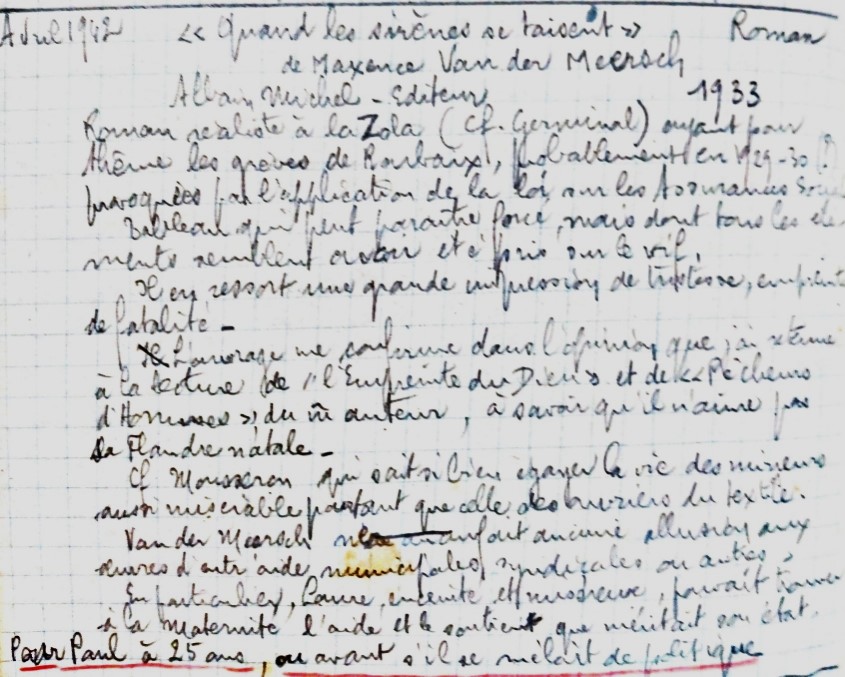 Avril 1942 « Quand les sirènes se taisent » Roman
de Maxence Van der Meersch
Albin Michel - Editeur 1933
Roman réaliste à la Zola (Cf. Germinal) ayant pour
thème les grèves de Roubaix, probablement en 1929-30 (?)
provoquées par l'application de la loi sur les Assurances Social
Tableau qui peut paraître forcé, mais dont tous les élé-
ments semblent avoir été pris sur le vif.
Il en ressort une grande impression de tristesse, empreinte
de fatalité -
L'ouvrage me confirme dans l'opinion que j'ai retenue
à la lecture de "l'Empreinte du Dieu" et de « Pêcheurs
d'Hommes », du m̄ auteur, à savoir qu'il n'aime pas
sa Flandre natale -
Cf Mousseron qui sait si bien égayer la vie des mineurs
aussi misérable pourtant que celle des ouvriers du textile.
Van der Meersch ne fait aucune allusion aux
œuvres d'entr'aide municipales, syndicales ou autres,
En particulier, Laure, enceinte et miséreuse, pouvait trouver
à la Maternité l'aide et le soutient que méritait son état.
Pour Paul à 25 ans, ou avant s'il se mêlait de politique